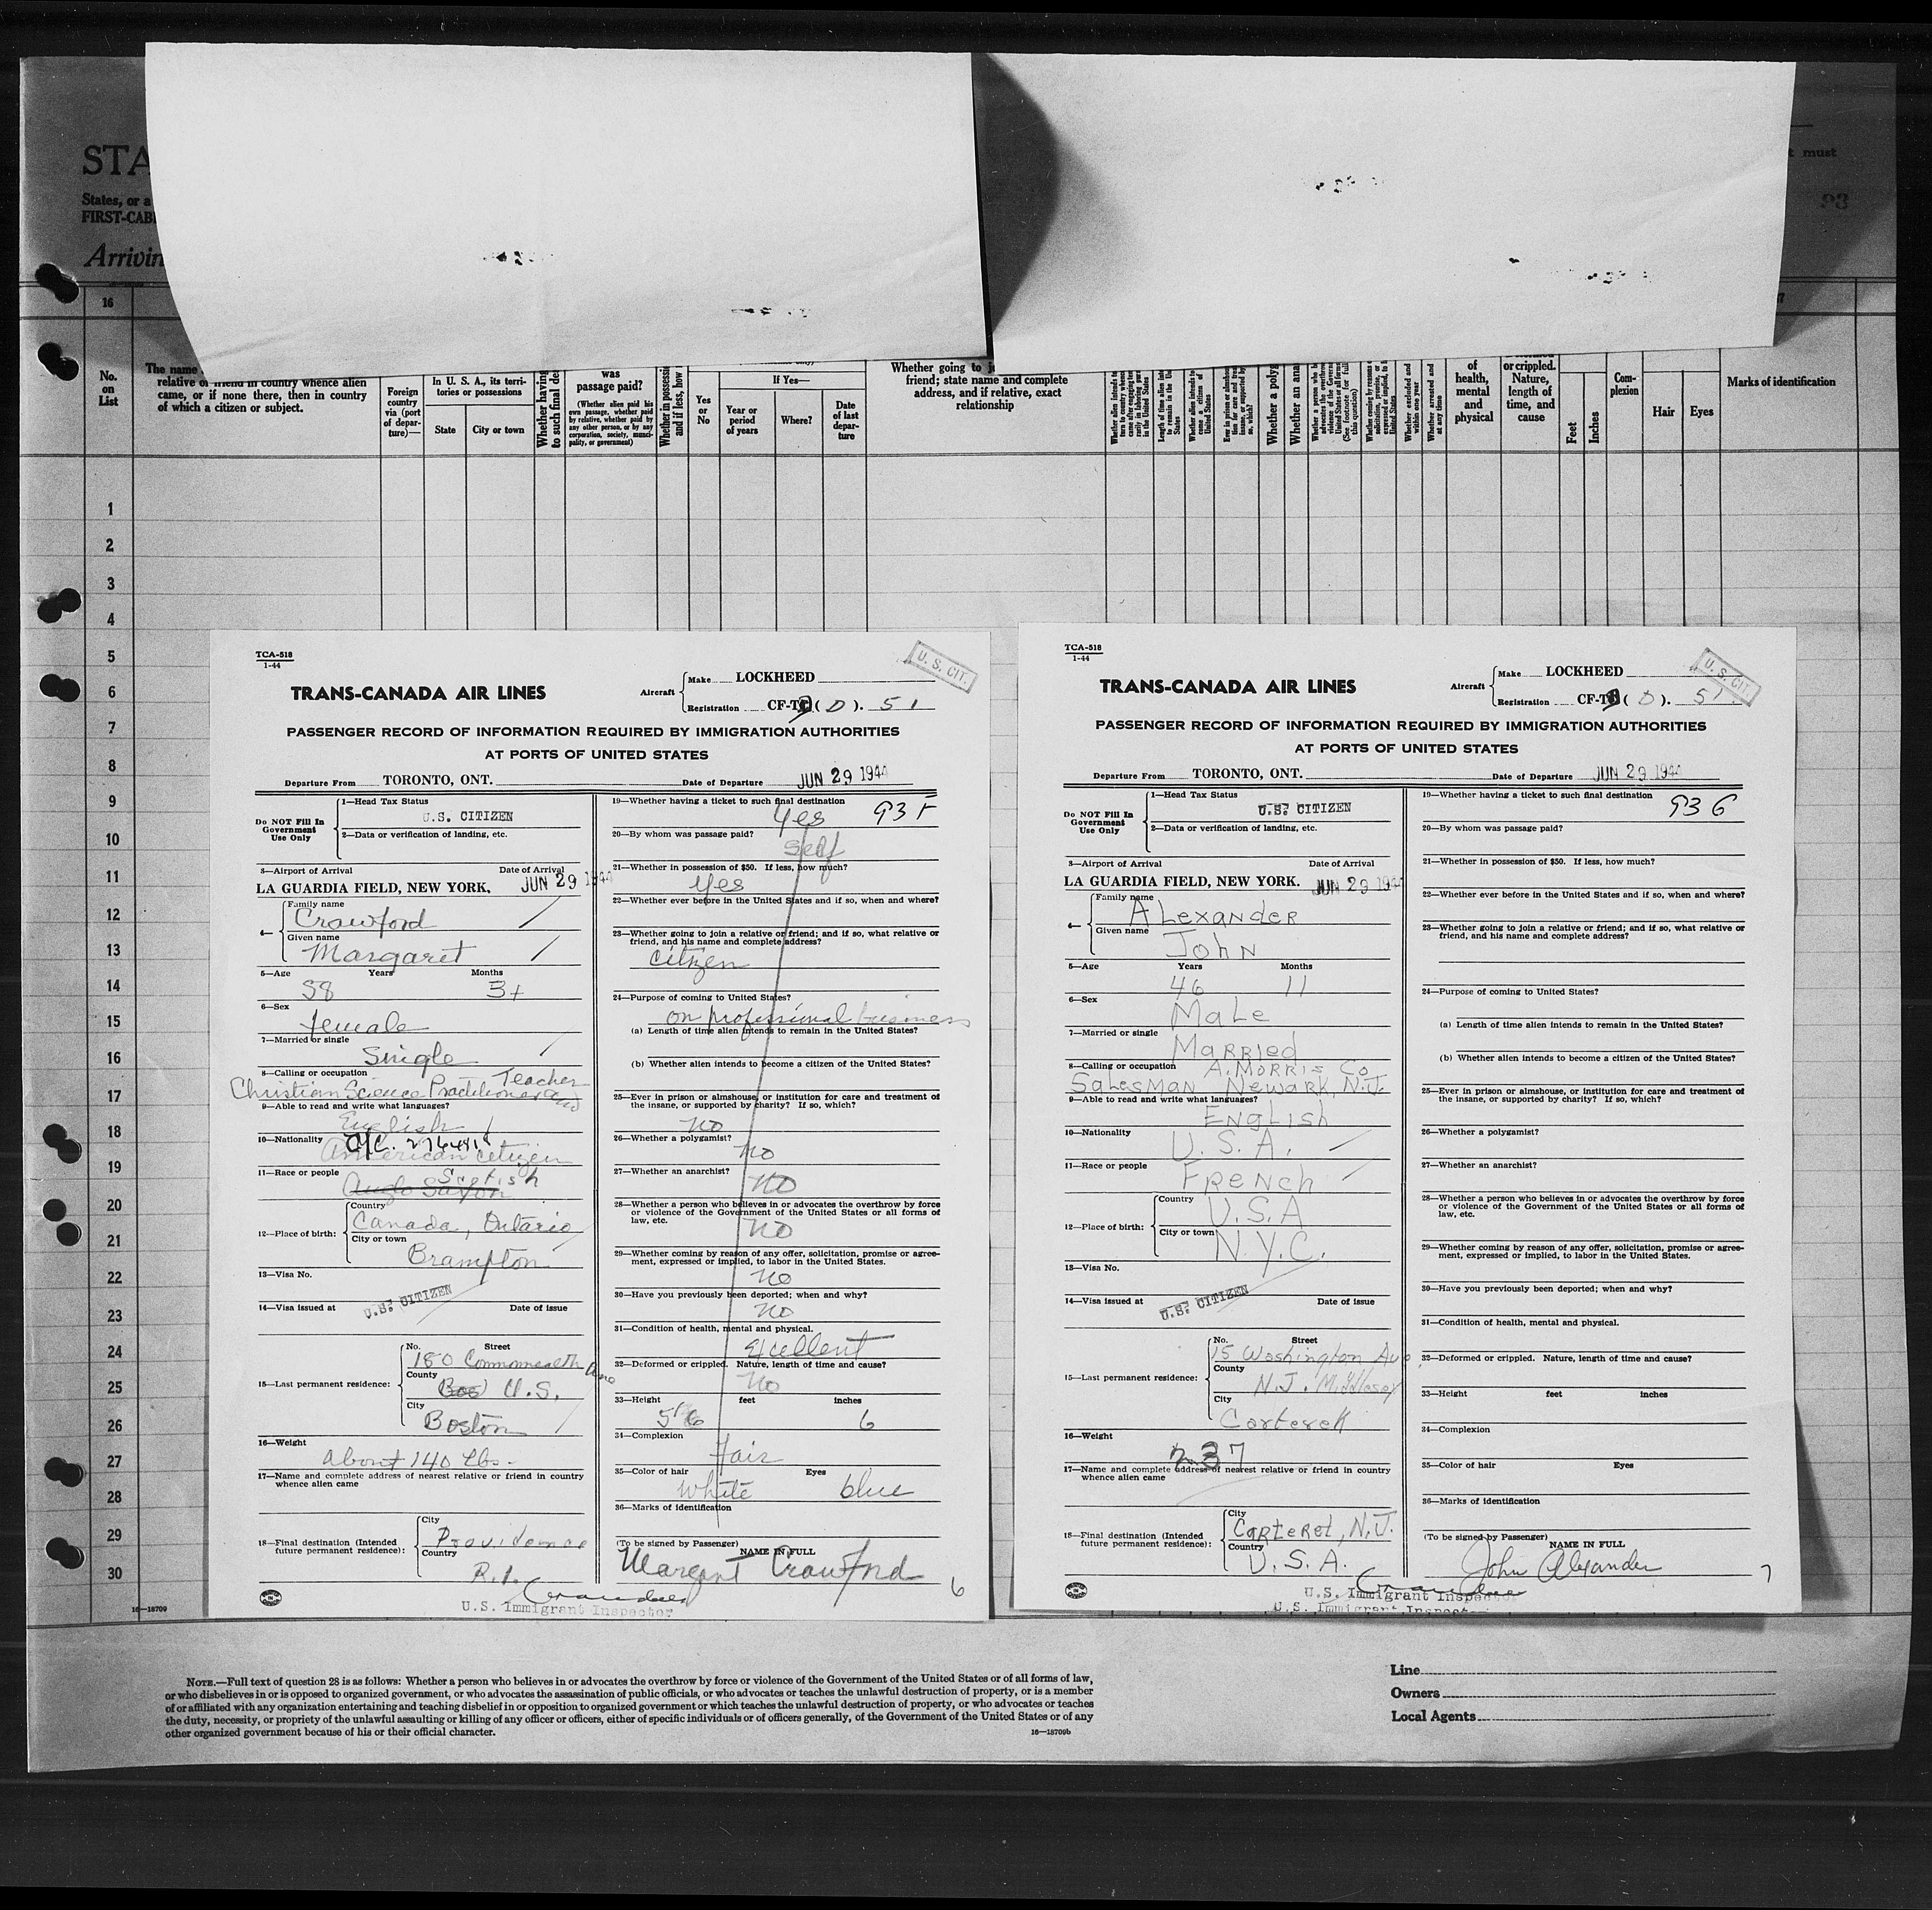 STA
States, or a
FIRST-CABI
Arrivin
t must
93
16
No.
on
List
The name
relative or friend in country whence alien
came, or if none there, then in country
of which a citizen or subject.
Foreign
country
via (port
of depar-
ture)—
In U. S. A., its terri-
tories or possessions
State
City or town
Whether having
to such final de
was
passage paid?
(Whether alien paid his
own passage, whether paid
by relative, whether paid by
any other person, or by any
corporation, society, munici-
pality, or government)
Whether in possessi
and if less, how
Yes
or
No
If Yes—
Year or
period
of years
Where?
Date
of last
depar-
ture
Whether going to j
friend; state name and complete
address, and if relative, exact
relationship
Whether a polyg
Whether an ana
of
health,
mental
and
physical
or crippled.
Nature,
length of
time, and
cause
Feet
Inches
Com-
plexion
Hair
Eyes
Marks of identification
1
2
3
4
5
6
7
8
9
10
11
12
13
14
15
16
17
18
19
20
21
22
23
24
25
26
27
28
29
30
TCA-518
1-44
U. S. CIT.
TRANS-CANADA AIR LINES
Aircraft
Make LOCKHEED
Registration CF-TC ( D ). 51
PASSENGER RECORD OF INFORMATION REQUIRED BY IMMIGRATION AUTHORITIES
AT PORTS OF UNITED STATES
Departure From TORONTO, ONT. Date of Departure JUN 29 1944
Do NOT Fill In
Government
Use Only
1—Head Tax Status
U.S. CITIZEN
2—Data or verification of landing, etc.
3—Airport of Arrival Date of Arrival
LA GUARDIA FIELD, NEW YORK, JUN 29 1944
4—
Family name
Crawford
Given name
Margaret
5—Age Years Months
58 3+
6—Sex
female
7—Married or single
Single
8—Calling or occupation Teacher
Christian Science Practitioner and
9—Able to read and write what languages?
English
10—Nationality C/C. 2764818
American citizen
11—Race or people Scotish
Anglo Saxon
12—Place of birth:
Country
Canada, Ontario
City or town
Brampton
13—Visa No.
U.S. CITIZEN
14—Visa issued at Date of issue
15—Last permanent residence:
No. Street
180 Commonwealth Ave
County
Bos U.S.
City
Boston
16—Weight
about 140 lbs.
17—Name and complete address of nearest relative or friend in country
whence alien came
18—Final destination (Intended
future permanent residence):
City
Providence
Country
R.I.
U.S. Immigrant Inspector
19—Whether having a ticket to such final destination
Yes 935
20—By whom was passage paid?
Self
21—Whether in possession of $50. If less, how much?
Yes
22—Whether ever before in the United States and if so, when and where?
23—Whether going to join a relative or friend; and if so, what relative or
friend, and his name and complete address?
Citizen
24—Purpose of coming to United States?
on professional business
(a) Length of time alien intends to remain in the United States?
(b) Whether alien intends to become a citizen of the United States?
25—Ever in prison or almshouse, or institution for care and treatment of
the insane, or supported by charity? If so, which?
No
26—Whether a polygamist?
No
27—Whether an anarchist?
No
28—Whether a person who believes in or advocates the overthrow by force
or violence of the Government of the United States or all forms of
law, etc.
No
29—Whether coming by reason of any offer, solicitation, promise or agree-
ment, expressed or implied, to labor in the United States.
No
30—Have you previously been deported; when and why?
No
31—Condition of health, mental and physical.
Excellent
32—Deformed or crippled. Nature, length of time and cause?
No
33—Height feet inches
5 6
34—Complexion
Fair
35—Color of hair Eyes
White blue
36—Marks of identification
(To be signed by Passenger) NAME IN FULL
Margaret Crawford
6
TCA-518
1-44
U. S. CIT.
TRANS-CANADA AIR LINES
Aircraft
Make LOCKHEED
Registration CF-TC ( D ). 51
PASSENGER RECORD OF INFORMATION REQUIRED BY IMMIGRATION AUTHORITIES
AT PORTS OF UNITED STATES
Departure From TORONTO, ONT. Date of Departure JUN 29 1944
Do NOT Fill In
Government
Use Only
1—Head Tax Status
U.S. CITIZEN
2—Data or verification of landing, etc.
3—Airport of Arrival Date of Arrival
LA GUARDIA FIELD, NEW YORK. JUN 29 1944
4—
Family name
Alexander
Given name
John
5—Age Years Months
46 11
6—Sex
Male
7—Married or single
Married
8—Calling or occupation A. Morris Co
Salesman Newark, N.J.
9—Able to read and write what languages?
English
10—Nationality
U.S.A.
11—Race or people
French
12—Place of birth:
Country
U.S.A
City or town
N.Y.C.
13—Visa No.
U.S. CITIZEN
14—Visa issued at Date of issue
15—Last permanent residence:
No. Street
15 Washington Ave
County
N.J. Middlesex
City
Carteret
16—Weight
237
17—Name and complete address of nearest relative or friend in country
whence alien came
18—Final destination (Intended
future permanent residence):
City
Carteret, N.J.
Country
U.S.A.
U.S. Immigrant Inspector
U.S. Immigrant Inspector
19—Whether having a ticket to such final destination
936
20—By whom was passage paid?
21—Whether in possession of $50. If less, how much?
22—Whether ever before in the United States and if so, when and where?
23—Whether going to join a relative or friend; and if so, what relative or
friend, and his name and complete address?
24—Purpose of coming to United States?
(a) Length of time alien intends to remain in the United States?
(b) Whether alien intends to become a citizen of the United States?
25—Ever in prison or almshouse, or institution for care and treatment of
the insane, or supported by charity? If so, which?
26—Whether a polygamist?
27—Whether an anarchist?
28—Whether a person who believes in or advocates the overthrow by force
or violence of the Government of the United States or all forms of
law, etc.
29—Whether coming by reason of any offer, solicitation, promise or agree-
ment, expressed or implied, to labor in the United States.
30—Have you previously been deported; when and why?
31—Condition of health, mental and physical.
32—Deformed or crippled. Nature, length of time and cause?
33—Height feet inches
34—Complexion
35—Color of hair Eyes
36—Marks of identification
(To be signed by Passenger) NAME IN FULL
John Alexander
7
16—18709
NOTE.—Full text of question 28 is as follows: Whether a person who believes in or advocates the overthrow by force or violence of the Government of the United States or of all forms of law,
or who disbelieves in or is opposed to organized government, or who advocates the assassination of public officials, or who advocates or teaches the unlawful destruction of property, or is a member
of or affiliated with any organization entertaining and teaching disbelief in or opposition to organized government or which teaches the unlawful destruction of property, or who advocates or teaches
the duty, necessity, or propriety of the unlawful assaulting or killing of any officer or officers, either of specific individuals or of officers generally, of the Government of the United States or of any
other organized government because of his or their official character.
16—18709b
Line
Owners
Local Agents